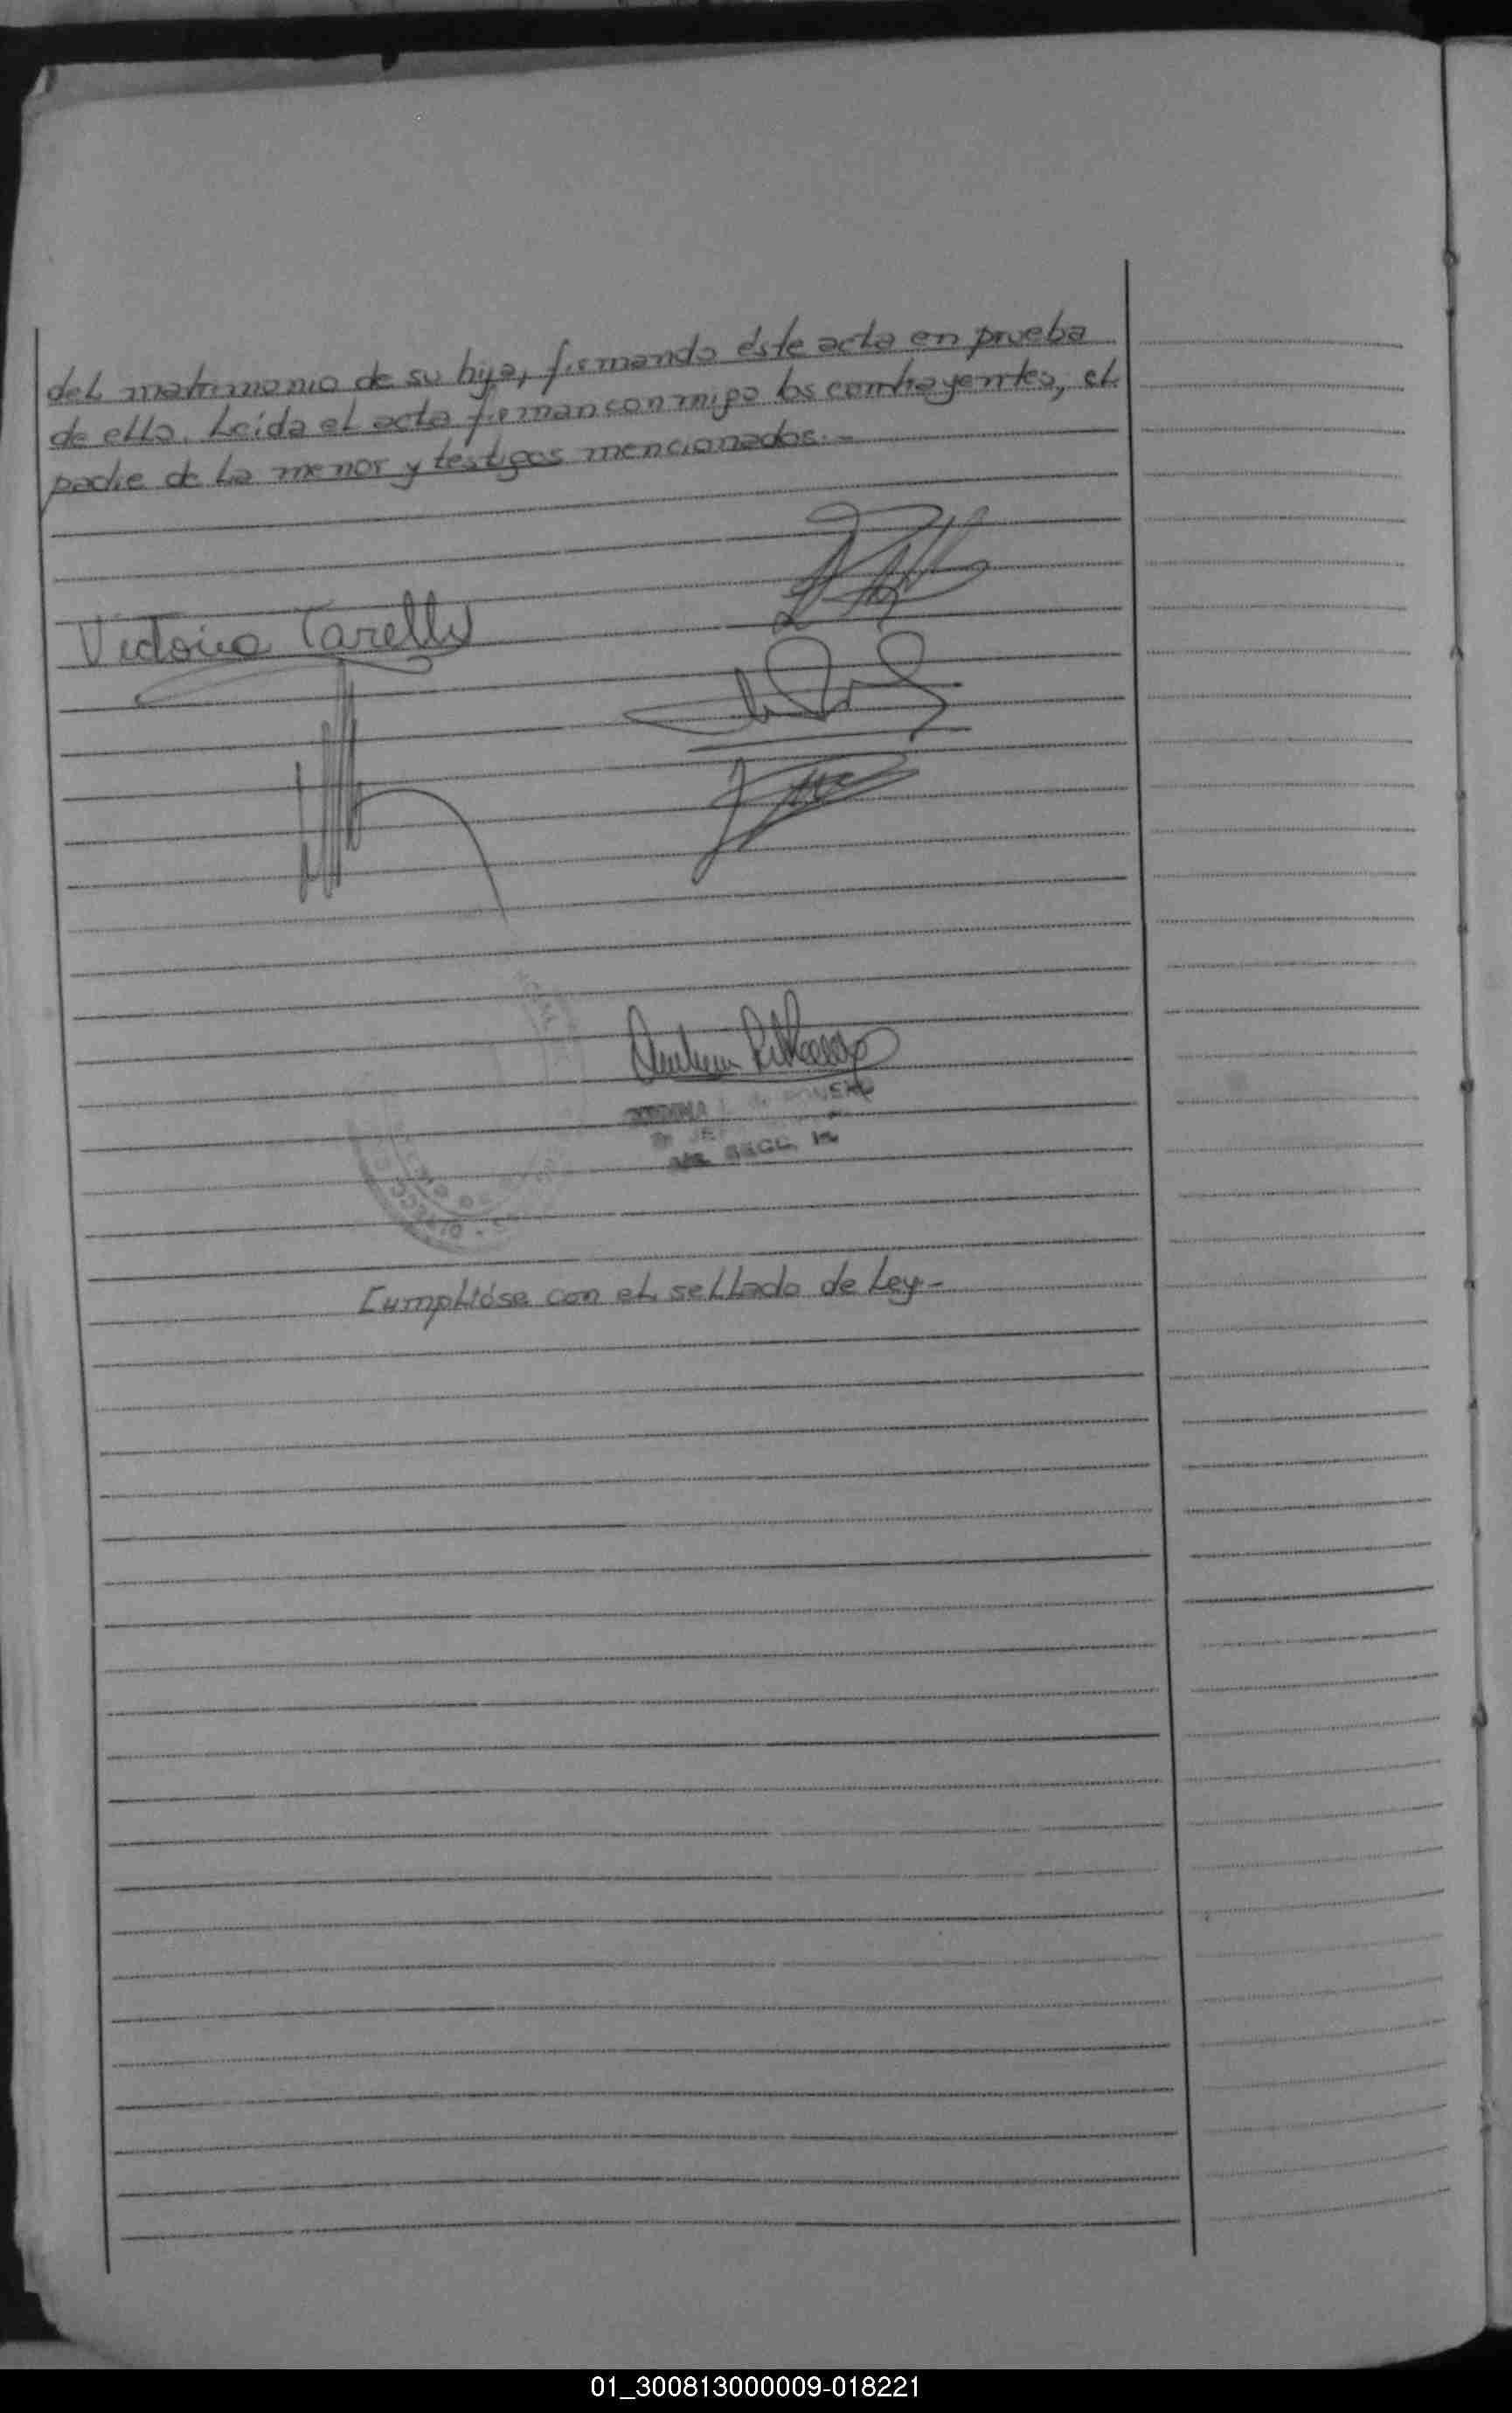 del matrimonio de su hija, firmando éste acta en prueba
de ello. Leída el acta firman conmigo los contrayentes, el
padre de la menor y testigos mencionados.-
Victoria Tarelli
SECC.
Cumplióse con el sellado de Ley.-
01_300813000009-018221